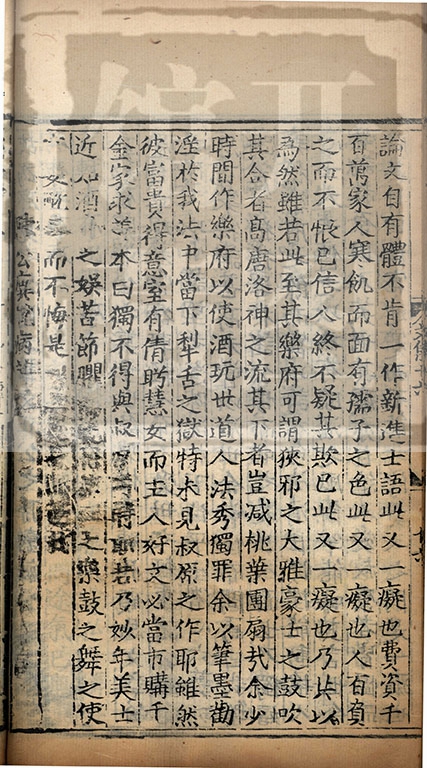 論文自有體不肯一作新進士語此又一癡也費資千
百萬家人寒飢而面有孺子之色此又一癡也人百負
之而不恨己信人終不疑其欺已此又一癡也乃共以
為然雖若此至其樂府可謂狹邪之大雅豪士之鼓吹
其合者高唐洛神之流其下者豈減桃葉團扇哉余少
時間作樂府以使酒玩世道人法秀獨罪余以筆墨勸
淫於我法中當下犁舌之獄特未見叔原之作耶雖然
彼富貴得意室有倩盼慧女而主人好文必當市購千
金家求善本曰獨不得與叔原同時耶若乃妙年美士
近知酒 之娛苦節臞 之樂鼓之舞之使
而不悔是